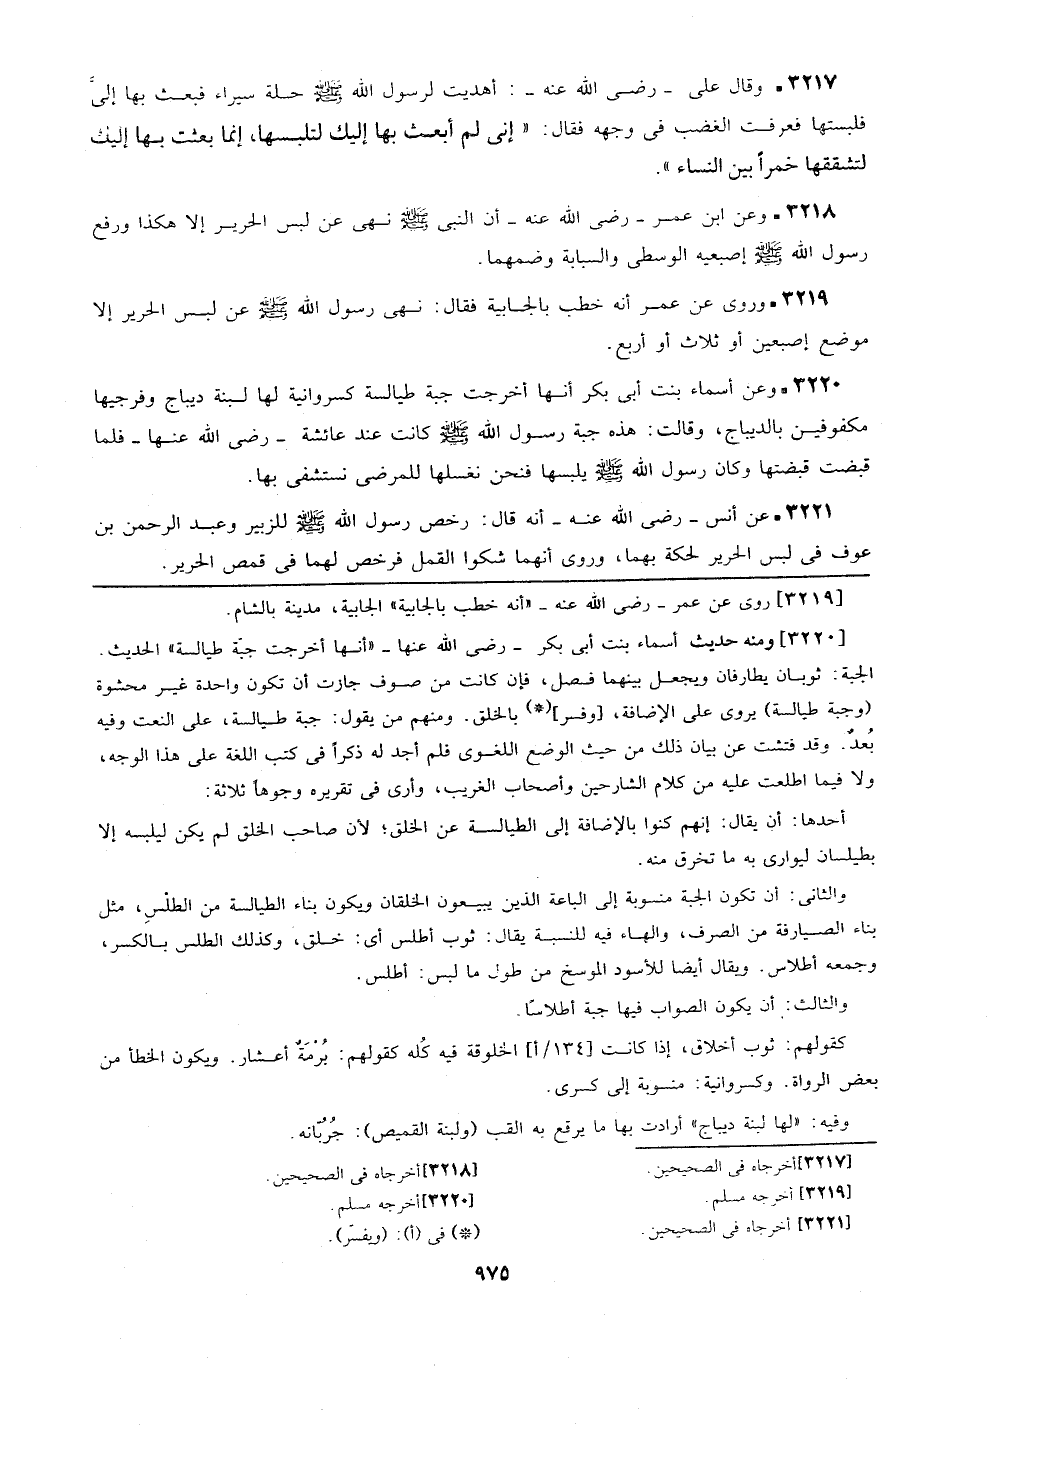 ٣٢١٧. وقال على ـ رضى الله عنه ـ : أهديت لرسول الله ﷺ حلة سيراء فبعث بها إلىَّ
فلبستها فعرفت الغضب فى وجهه فقال: « إنى لم أبعث بها إليك لتلبسها، إنما بعثت بها إليك
لتشققها خمراً بين النساء ».
٣٢١٨. وعن ابن عمر ـ رضى الله عنه ـ أن النبى ﷺ نهى عن لبس الحرير إلا هكذا ورفع
رسول الله ﷺ إصبعيه الوسطى والسبابة وضمهما.
٣٢١٩. وروى عن عمر أنه خطب بالجابية فقال: نهى رسول الله ﷺ عن لبس الحرير إلا
موضع إصبعين أو ثلاث أو أربع.
٣٢٢٠. وعن أسماء بنت أبى بكر أنها أخرجت جبة طيالسة كسروانية لها لبنة ديباج وفرجيها
مكفوفين بالديباج، وقالت: هذه جبة رسول الله ﷺ كانت عند عائشة ـ رضى الله عنها ـ فلما
قبضت قبضتها وكان رسول الله ﷺ يلبسها فنحن نغسلها للمرضى نستشفى بها.
٣٢٢١. عن أنس ـ رضى الله عنه ـ أنه قال: رخص رسول الله ﷺ للزبير وعبد الرحمن بن
عوف فى لبس الحرير لحكة بهما، وروى أنهما شكوا القمل فرخص لهما فى قمص الحرير.
[٣٢١٩] روى عن عمر ـ رضى الله عنه ـ «أنه خطب بالجابية» الجابية، مدينة بالشام.
[٣٢٢٠] ومنه حديث أسماء بنت أبى بكر ـ رضى الله عنها ـ «أنها أخرجت جبّة طيالسة» الحديث.
الجبة: ثوبان يطارفان ويجعل بينهما فصل، فإن كانت من صوف جازت أن تكون واحدة غير محشوة
(وجبة طيالسة) يروى على الإضافة، [وفسر](*) بالخلق. ومنهم من يقول: جبة طيالسة، على النعت وفيه
بُعدٌ. وقد فتشت عن بيان ذلك من حيث الوضع اللغوى فلم أجد له ذكراً فى كتب اللغة على هذا الوجه،
ولا فيما اطلعت عليه من كلام الشارحين وأصحاب الغريب، وأرى فى تقريره وجوهاً ثلاثة:
أحدها: أن يقال: إنهم كنوا بالإضافة إلى الطيالسة عن الخلق؛ لأن صاحب الخلق لم يكن ليلبسه إلا
بطيلسان ليوارى به ما تخرق منه.
والثانى: أن تكون الجبة منسوبة إلى الباعة الذين يبيعون الخلقان ويكون بناء الطيالسة من الطلْسِ، مثل
بناء الصيارفة من الصرف، والهاء فيه للنسبة يقال: ثوب أطلس أى: خلق، وكذلك الطلس بالكسر،
وجمعه أطلاس. ويقال أيضا للأسود الموسخ من طول ما لبس: أطلس.
والثالث: أن يكون الصواب فيها جبة أطلاسًا.
كقولهم: ثوب أخلاق، إذا كانت [١٣٤/أ] الخلوقة فيه كُله كقولهم: بُرْمَةٌ أعشار. ويكون الخطأ من
بعض الرواة. وكسروانية: منسوبة إلى كسرى.
وفيه: «لها لبنة ديباج» أرادت بها ما يرقع به القب (ولبنة القميص): جُرُبّانه.
[٣٢١٧] أخرجاه فى الصحيحين.
[٣٢١٨] أخرجاه فى الصحيحين.
[٣٢١٩] أخرجه مسلم.
[٣٢٢٠] أخرجه مسلم.
[٣٢٢١] أخرجاه فى الصحيحين.
(*) فى (أ): (ويفسّر).
٩٧٥